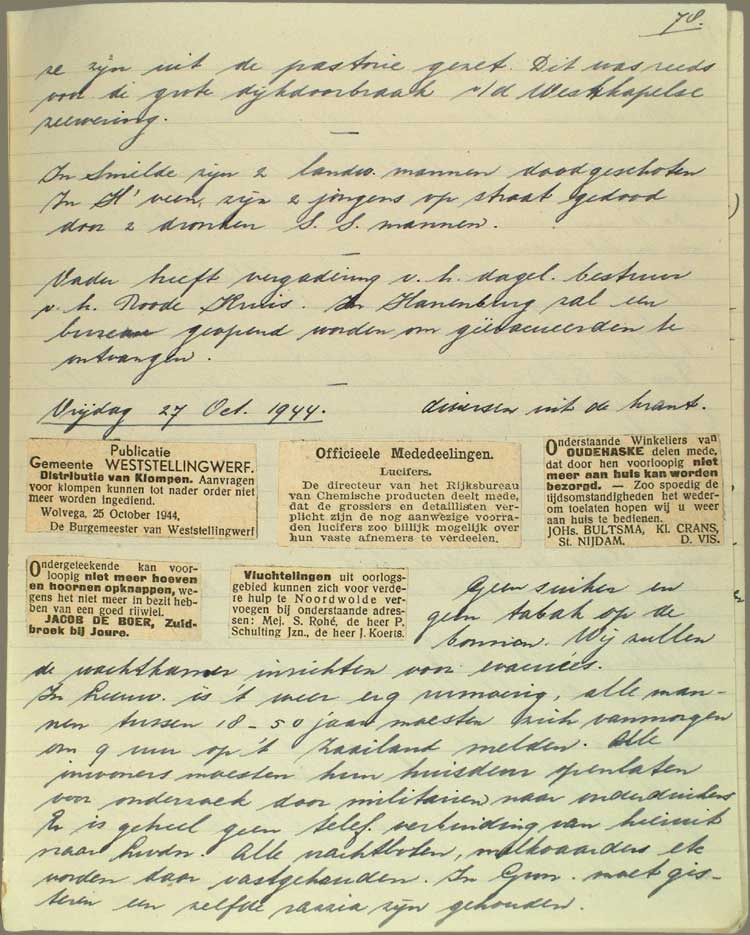 78.
ze zijn uit de pastorie gezet. Dit was reeds
voor de grote dijkdoorbraak v/d Westkapelse
zeewering.
In Smilde zijn 2 landw. mannen doodgeschoten
In H'veen, zijn 2 jongens op straat gedood
door 2 dronken S.S. mannen.
Vader heeft vergadering v.h. dagel. bestuur
v.h. Roode Kruis. In Hanenburg zal een
bureau geopend worden om geëvacueerden te
ontvangen.
Vrijdag 27 Oct. 1944. diversen uit de krant.
Publicatie
Gemeente WESTSTELLINGWERF.
Distributie van Klompen. Aanvragen
voor klompen kunnen tot nader order niet
meer worden ingediend.
Wolvega, 25 October 1944,
De Burgemeester van Weststellingwerf
Officieele Mededeelingen.
Lucifers.
De directeur van het Rijksbureau
van Chemische producten deelt mede,
dat de grossiers en detaillisten ver-
plicht zijn de nog aanwezige voorra-
den lucifers zoo billijk mogelijk over
hun vaste afnemers te verdeelen.
Onderstaande Winkeliers van
OUDEHASKE deelen mede,
dat door hen voorloopig niet
meer aan huis kan worden
bezorgd. — Zoo spoedig de
tijdsomstandigheden het weder-
om toelaten hopen wij u weer
aan huis te bedienen.
JOHs. BULTSMA, Kl. CRANS,
St. NIJDAM. D. VIS.
Ondergeteekende kan voor-
loopig niet meer hoeven
en hoornen opknappen, we-
gens het niet meer in bezit heb-
ben van een goed rijwiel.
JACOB DE BOER, Zuid-
broek bij Joure.
Vluchtelingen uit oorlogs-
gebied kunnen zich voor verde-
re hulp te Noordwolde ver-
voegen bij onderstaande adres-
sen: Mej. S. Rohé, de heer P.
Schulting Jzn., de heer J. Koerts.
Geen suiker en
geen tabak op de
bonnen. Wij zullen
de wachtkamer inrichten voor evacué's.
In Leeuw. is 't weer erg rumoerig, alle man-
nen tussen 18-50 jaar moesten zich vanmorgen
om 9 uur op 't Zaailand melden. Alle
inwoners moesten hun huisdeur openlaten
voor onderzoek door militairen naar onderduikers
Er is geheel geen telef. verbinding van hieruit
naar Lwdn. Alle nachtboten, melkvaarders etc
worden daar vastgehouden. In Gron. moet gis-
teren een zelfde razzia zijn gehouden.